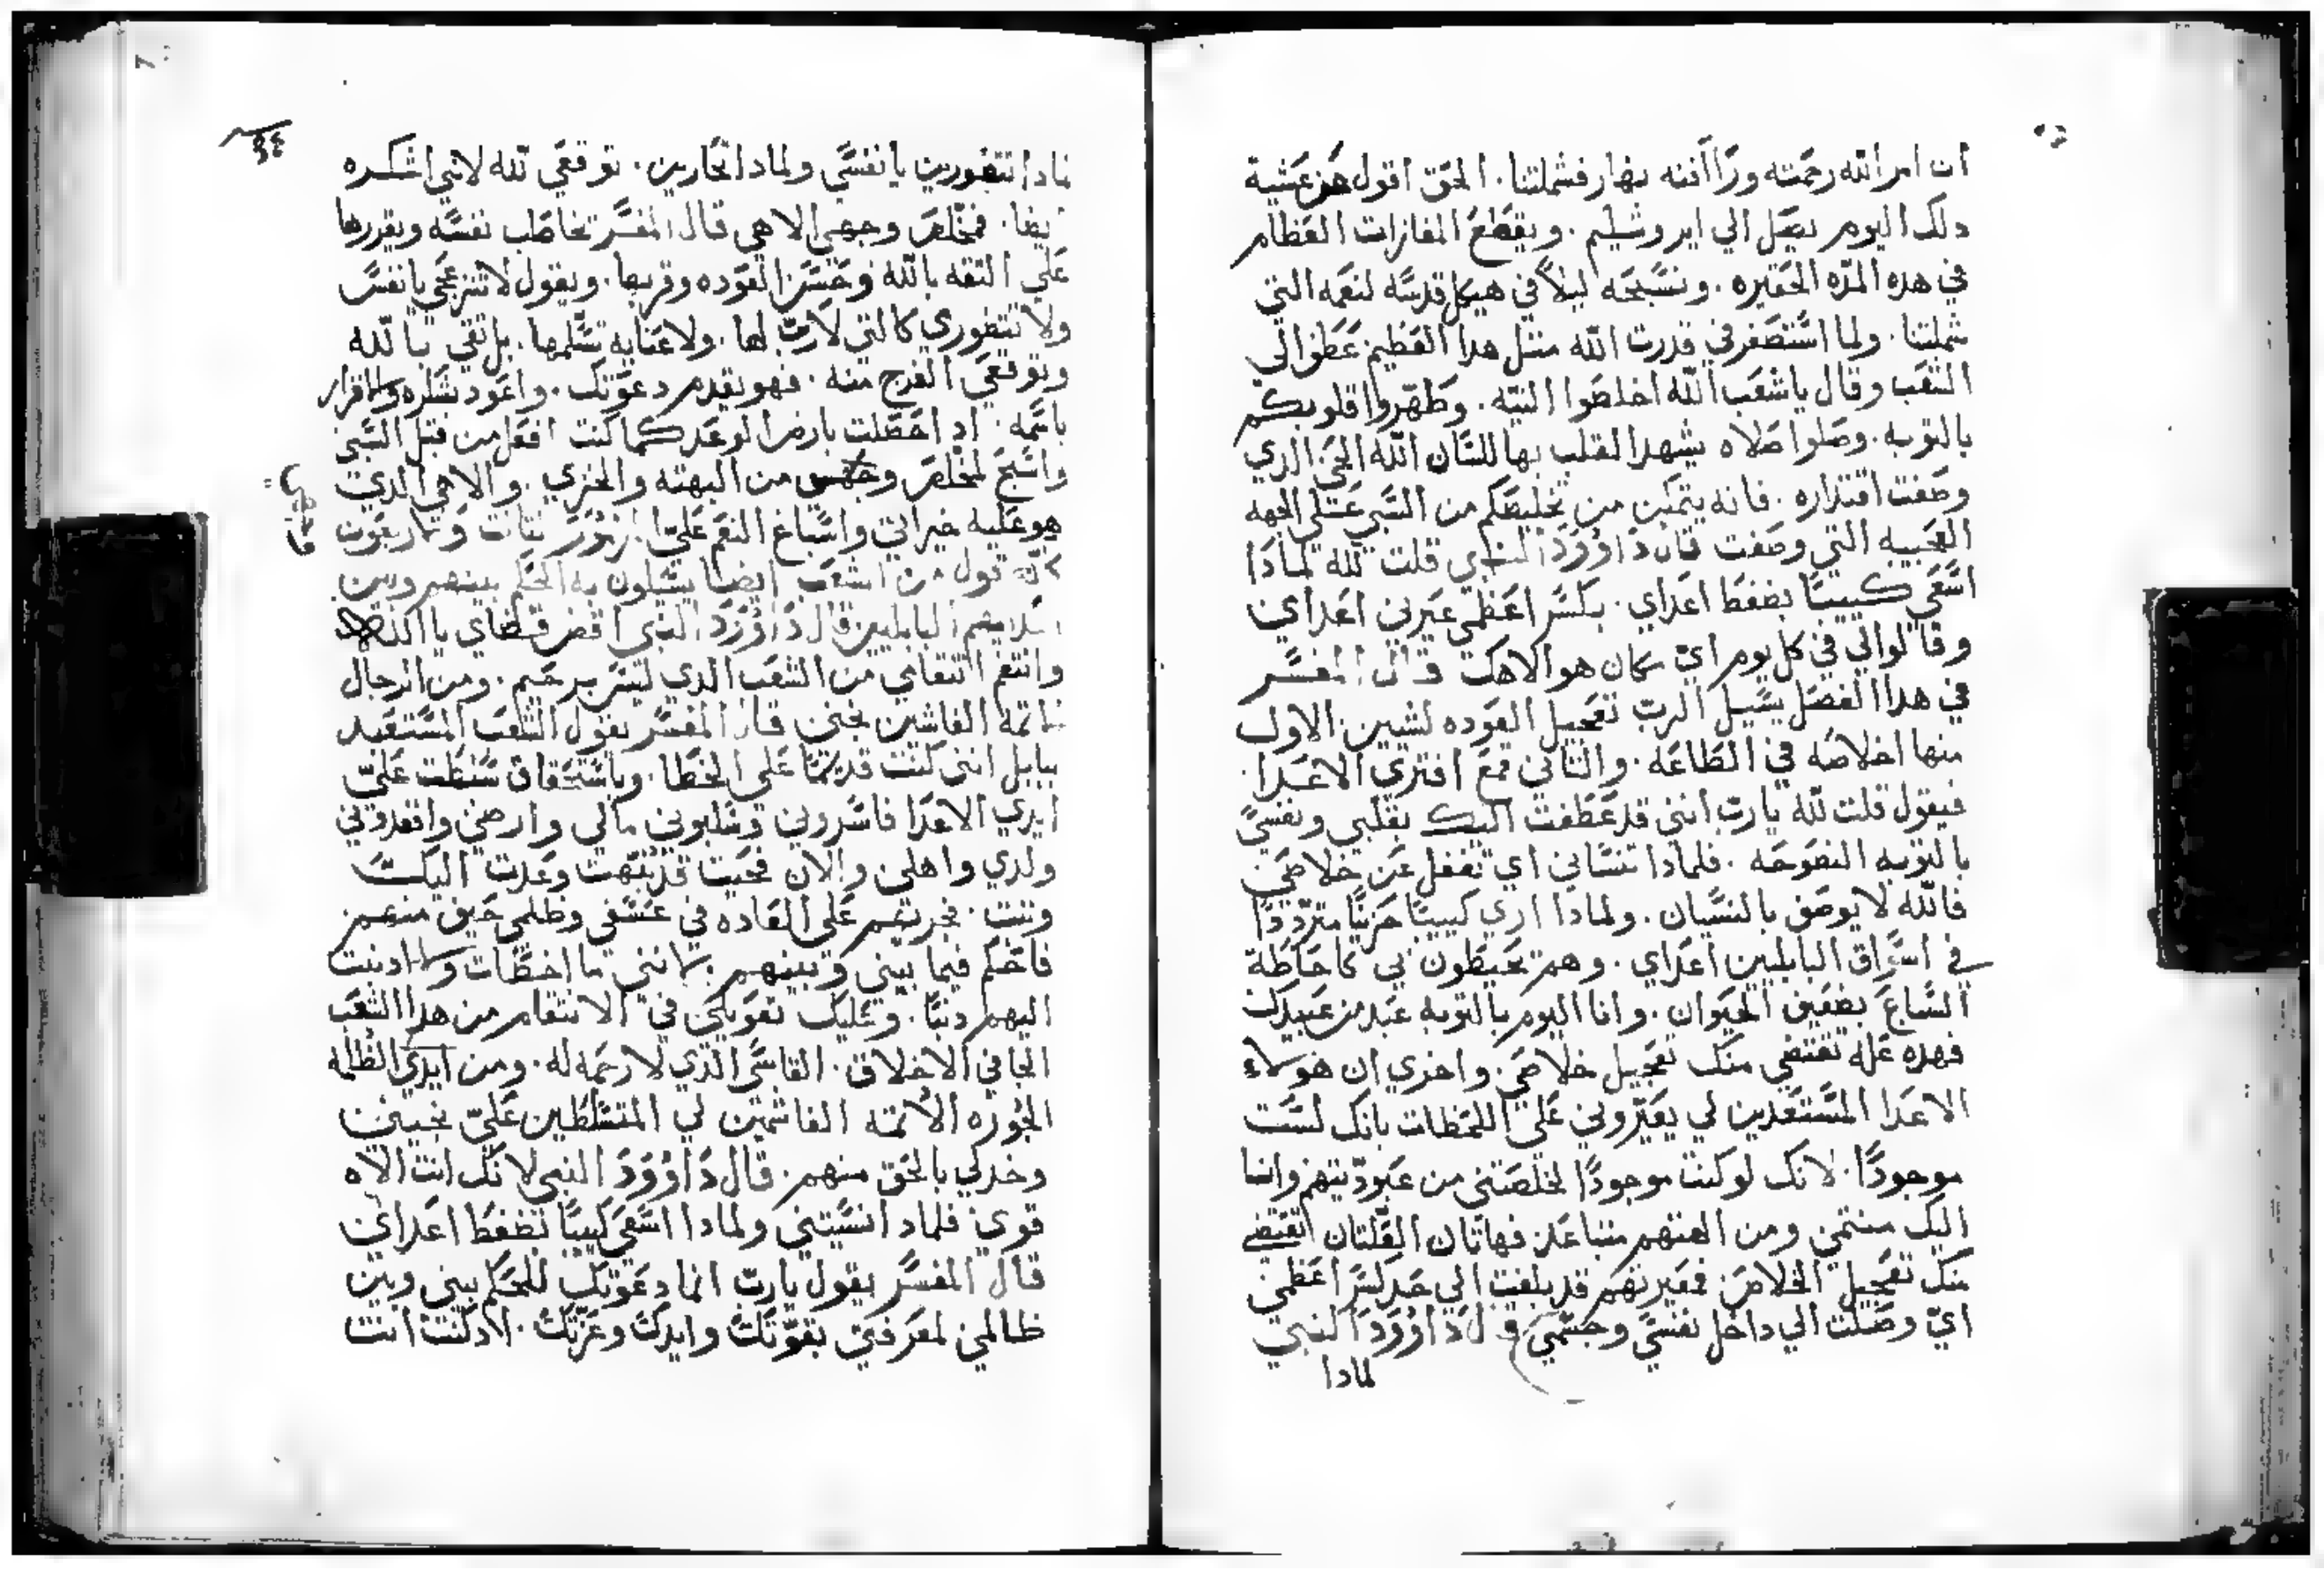 ان امر الله رحمته ورأافته نهار فشملتنا. الحق اقول عشية
دلك اليوم نصل الي ايروشليم. ونقطع المفازات العظام
في هده المدّه الحقيره. ونسّبحه ليلاً في هيكل قدسّه لنعمه التي
شملتنا. ولما اسّتصغر في قدرت الله متل هدا العظيم عطف الي
الشعب وقال ياشعب الله اخلصوا النيّه. وطهّروا قلوبكم
بالتوبه. وصلوا صلاه يشهد القلب بها للسّان الله الحي الدي
وصفت اقتداره. فانه يتمكن من تخليصكم من السّبي علي الجهه
العجيبه التي وصفت قال داوود النبي قلت لله لمادا
اسّعي كييبًا بضغط اعداي. بكسّر اعظمي عيرني اعداي
وقالوا لي في كل يوم ايّ مكان هو الاهك قال المفسّر
في هدا الفصل يسّيل الربّ تعجيل العوده لشيين الاول
منها اخلاصه في الطاعه. والتاني قمع افتري الاعدا.
فيقول قلت لله يا ربّ انني قد عطفت اليك بقلبي ونفسّي
بالتوبه النصوحه. فلمادا تنسّاني اي تغفل عن خلاصي
فالله لا يوصف بالنسّيان. ولمادا اري كييبًا حزينًا متردّدًا
في اسّواق البابليين اعداي. وهم يحيطون بي كاحاطة
السّباع بضعيف الحيوان. وانا اليوم بالتوبه عبد من عبيدك
فهده علّه تقتضي منك تعجيل خلاصي. واخري ان هولاء
الاعدا المسّتعبدين لي يعيّروني علي اللحظات بانك لسّت
موجودًا. لانك لو كنت موجودًا لخلصتني من عبوديّتهم وانا
اليك منتمي ومن الهتهم متباعد فهاتان العلّتان تقتضي
منك تعجيل الخلاص فمعيرتهم قد بلغت الي حد كسّر اعظمي
ايّ وصلت الي داخل نفسّي وجسّمي قال داوود النبي
لمادا
لمادا تتضورين يا نفسّي ولمادا تحارين. توقعي لله لانني اشكره
ايضا. فمخلص وجهي الاهي قال المفسّر تخاطب نفسّه ويقررها
علي التقه بالله وحسّن العوده وقربها. ويقول لا تنزعجي يا نفسّ
ولا تتضوري كالتي لا ربّ لها. ولا عنايه تشملها. بل تقي بالله
وتوقعي الفرج منه. فهو يقدم دعوتك. واعود نشكره والاقرار
باسّمه. اد احصلت بارض الوعد كما كنت افعل من قبل السّبي
واسّبح لمخلص وجهي من البهته والخزي. والاهي الدي
هو علّية خيراتي واسّباغ النعم عليّ المزمور تالت واربعون
قول من الشعب ايضا يسّيلون به الحكم بينهم وبين
البابليين قال داوود النبي اقض قضاي يا الله
وانتقم انتقامي من الشعب الدي ليسّ برحيم. ومن الرجال
الغاشين نجني قال المفسّر يقول الشعب المسّتعبد
ببابل انني كنت قديمًا علي الخطا. وباسّتحقاق سّلطت عليّ
ايدي الاعدا فاسّروني وسّلبوني مالي وارضي وافقدوني
ولدي واهلي والان فحيت قد نبّهت وعدت اليك
وتبت. فجريهم علي العاده في عسّفي وظلمي حيف منهم
فاحكم فيما بيني وبينهم بانني ما اخطات ولا ادنبت
اليهم دنبًا. وعليك تعويلي في الانتقام من هدا الشعب
الجافي الاخلاق. القاسّي الدي لا رحمه له. ومن ايدي الظلمه
الجوره الاتمه الغاشمين لي المتسّلطين عليّ نجيني
وخد لي بالحق منهم. قال داوود النبي لانك انت الاه
قوي فلمادا نسّيتني ولمادا اسّعي كييبًا بضغط اعداي
قال المفسّر يقول يا ربّ انما دعوتك للحكم بيني وبين
ظالمي لمعرفتي بقوّتك وايدك وعزّتك. اد كنت انت